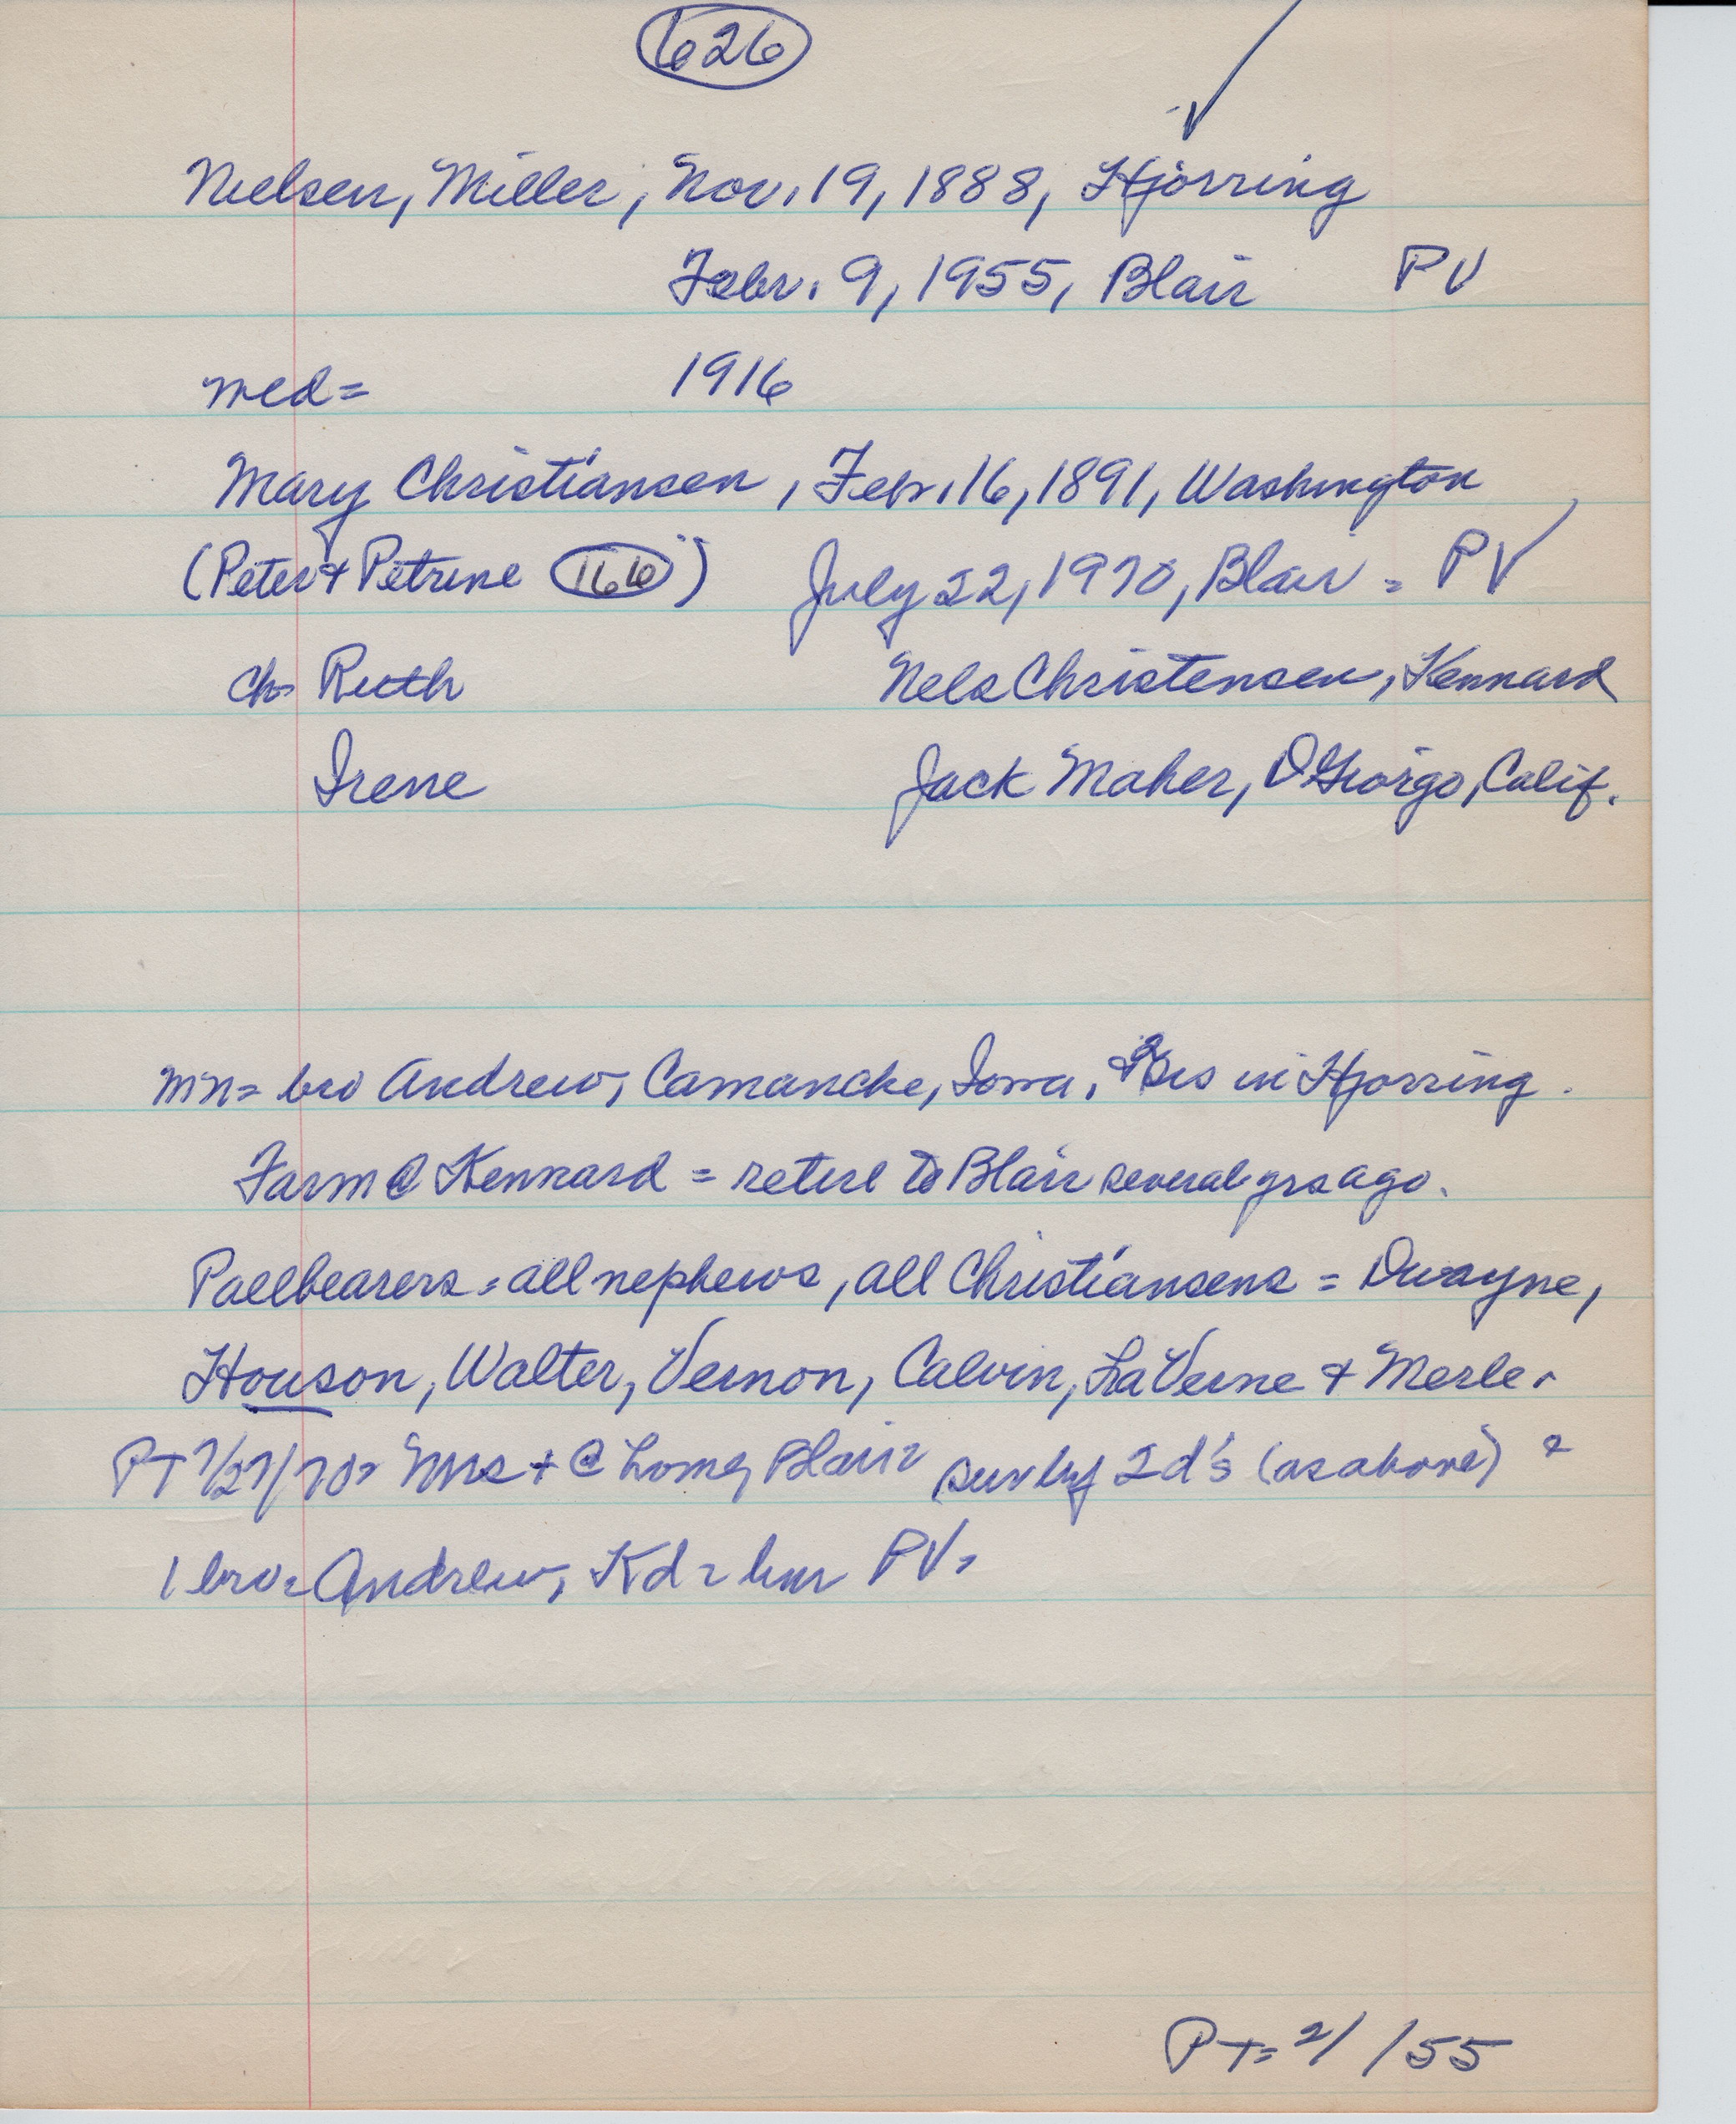 626
Nielsen, Miller, Nov. 19, 1888, Hjörring
Febr. 9, 1955, Blair PV
med= 1916
Mary Christiansen, Febr. 16, 1891, Washington
(Peter & Petrine 166) July 22, 1970, Blair = PV
ch= Ruth Nels Christensen, Kennard
Irene Jack Maher, DGiorgo, Calif.
MN= bro Andrew, Camancke, Iowa, & 2 sis in Hjorring.
Farm @ Kennard = retire to Blair several yrs ago.
Pallbearers = all nephews, all Christiansens = Dwayne,
Houson, Walter, Vernon, Calvin, LaVerne & Merle.
PT 7/27/70= Mrs + @ home, Blair= surv by 2 d's (as above) =
1 bro= Andrew, Kd= bur PV.
PT= 2/ /55